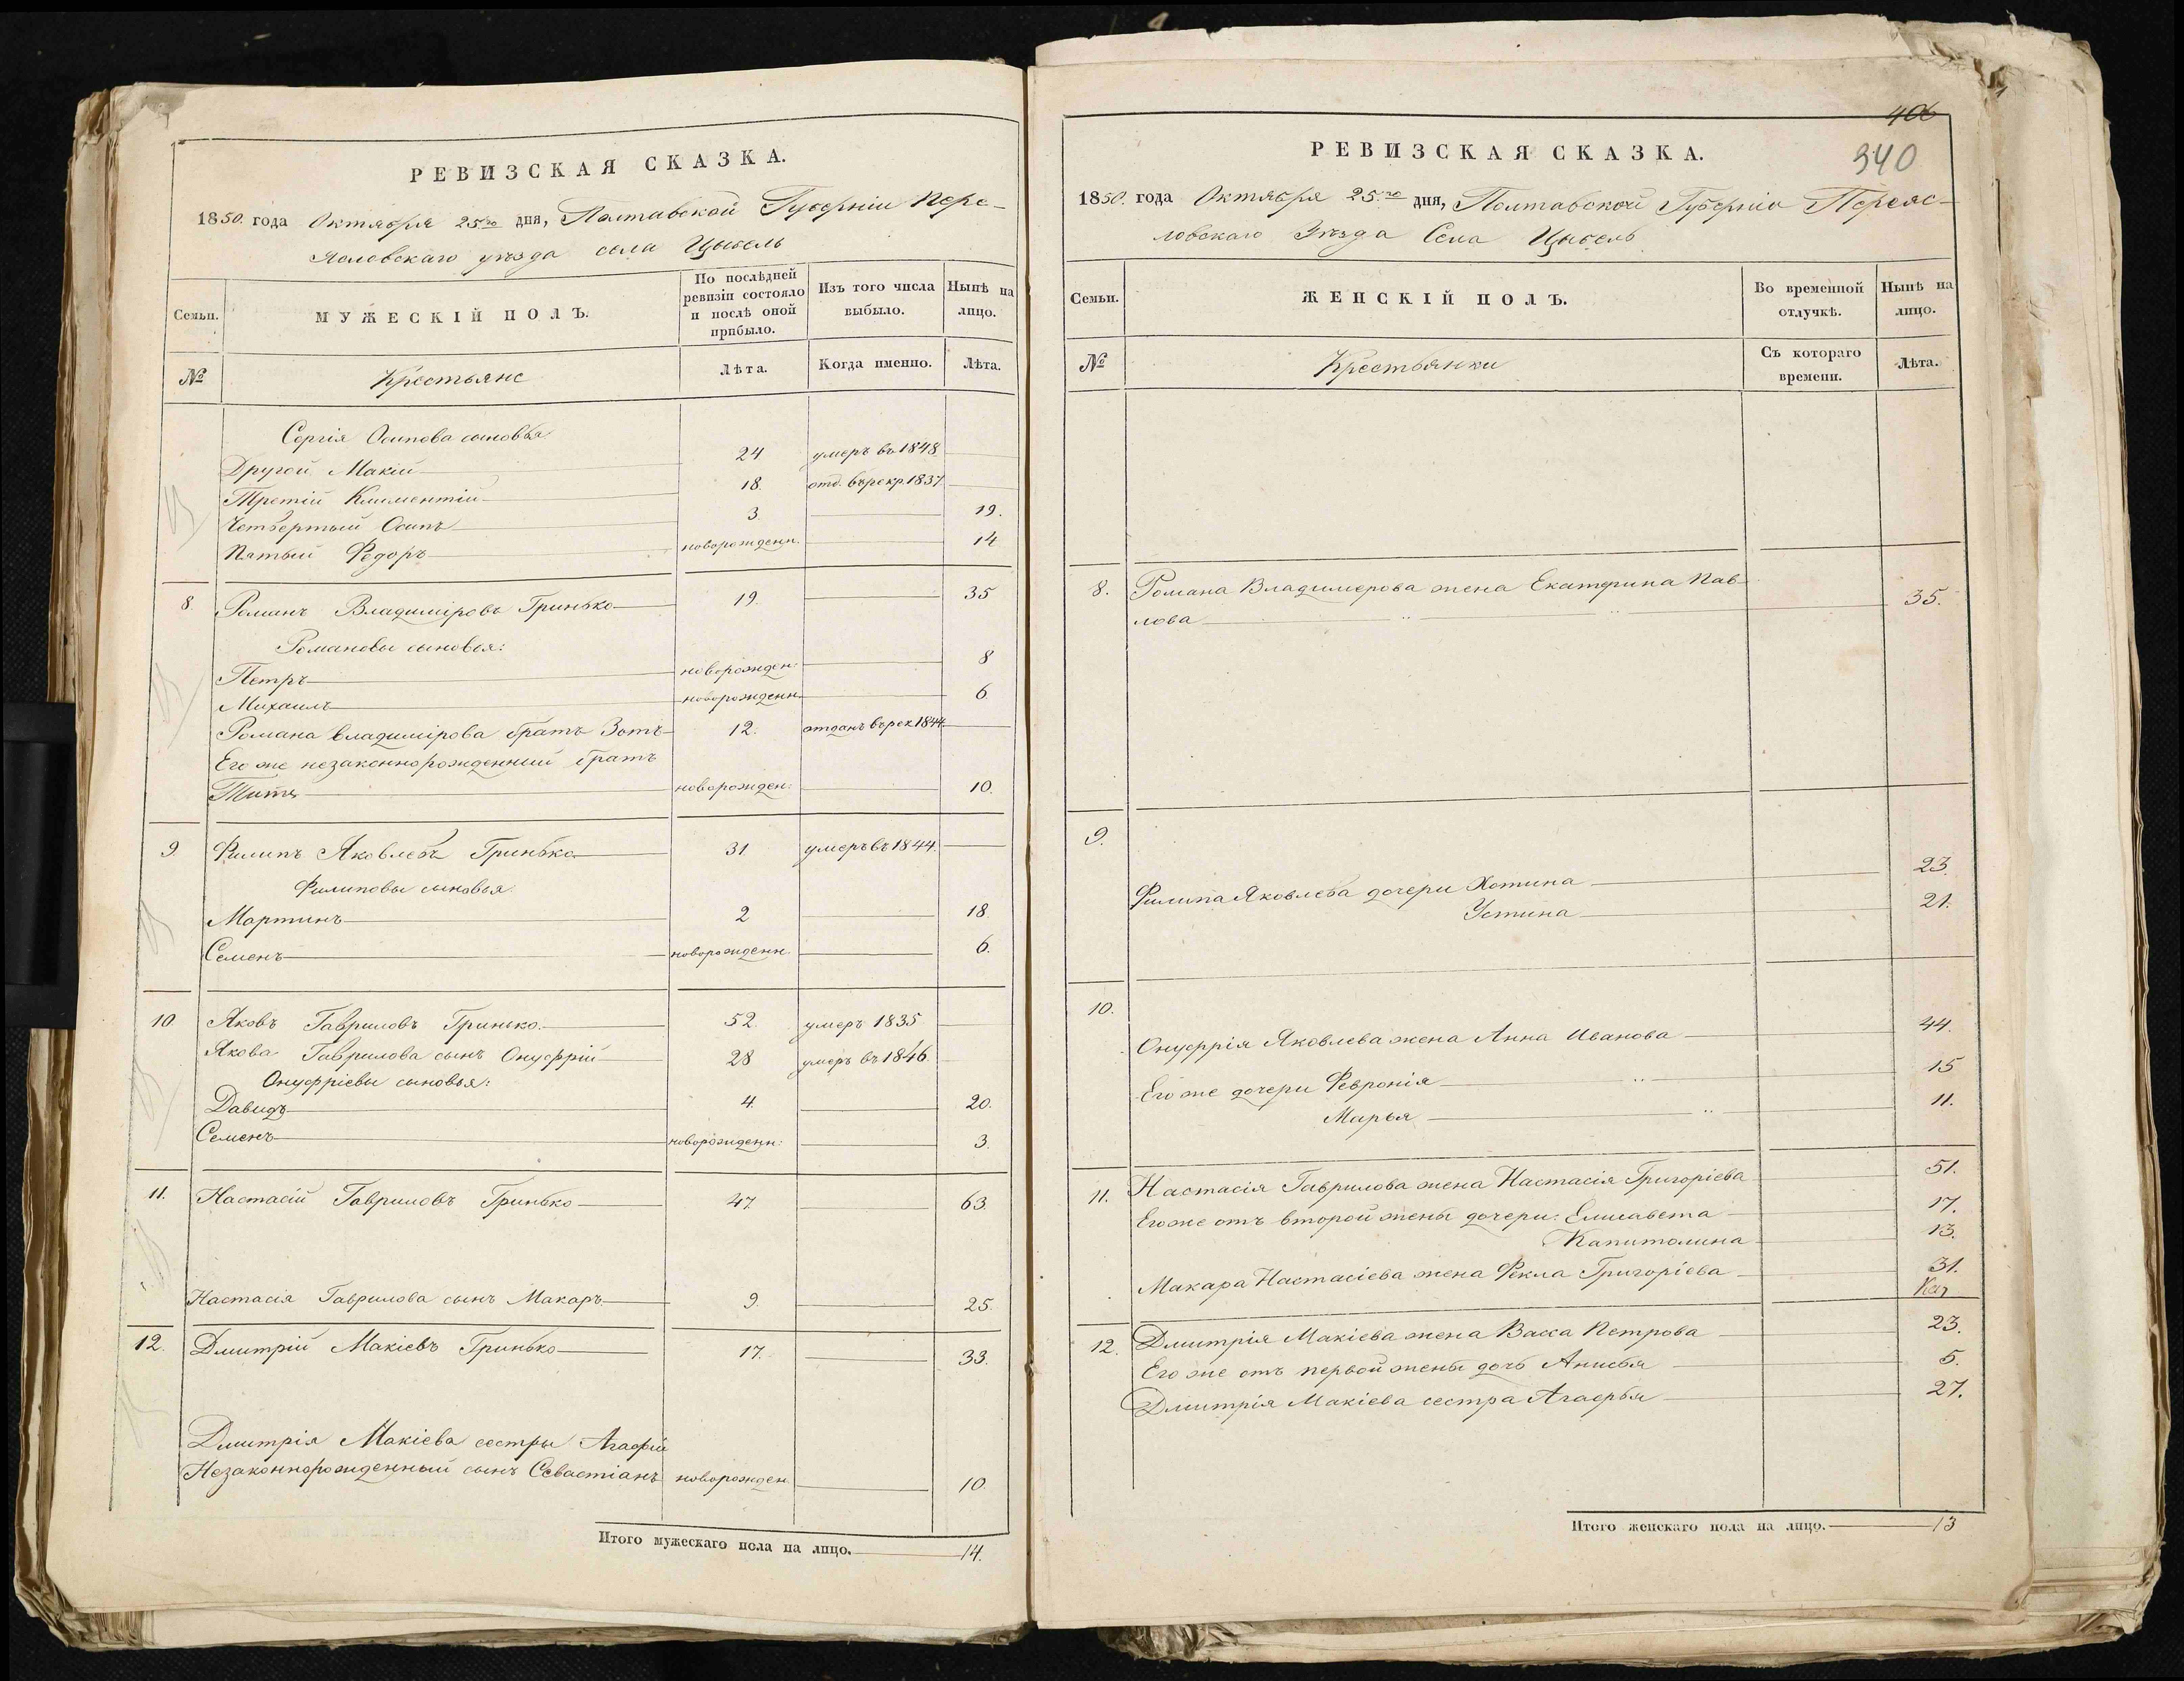 РЕВИЗСКАЯ СКАЗКА.
1850. года Октября 25го дня, Полтавской Губерніи Пере-
яславскаго уѣзда села Цыбель
Семьи.
МУЖЕСКІЙ ПОЛЪ.
По послѣдней ревизіи состояло и послѣ оной прибыло.
Изъ того числа выбыло.
Нынѣ на лицо.
№
Крестьяне
Лѣта.
Когда именно.
Лѣта.
Сергія Осипова сыновья
Другой Макій 24 умеръ въ 1848
Третій Климентій 18. отд. въ рекр. 1837
Четвертый Осипъ 3. 19.
Пятый Федоръ новорожденн. 14
8. Романъ Владиміровъ Гринько 19. 35
Романовы сыновья:
Петръ новорожден: 8
Михаилъ новорожденн. 6.
Романа Владимірова братъ Зотъ 12. отданъ въ рек 1844.
Его же незаконнорожденный братъ
Титъ новорожден: 10.
9. Филипъ Яковлевъ Гринько 31 умеръ въ 1844.
Филиповы сыновья.
Мартинъ 2 18.
Семенъ новорожденн. 6.
10. Яковъ Гавриловъ Гринько. 52. умеръ 1835
Якова Гаврилова сынъ Онуфрій 28 умеръ въ 1846.
Онуфріевы сыновья:
Давидъ 4. 20.
Семенъ новорожденн: 3.
11. Настасій Гавриловъ Гринько 47. 63.
Настасія Гаврилова сынъ Макаръ 9. 25.
12. Дмитрій Макіевъ Гринько 17. 33.
Дмитрія Макіева сестры Агафіи
Незаконнорожденный сынъ Севастіанъ новорожден. 10.
Итого мужескаго пола на лицо. 14.
406
340
РЕВИЗСКАЯ СКАЗКА.
1850. года Октября 25.го дня, Полтавской Губерніи Переяс-
ловскаго Уѣзда Села Цыбель
Семьи.
ЖЕНСКІЙ ПОЛЪ.
Во временной отлучкѣ.
Нынѣ на лицо.
№
Крестьянки
Съ котораго времени.
Лѣта.
8. Романа Владимерова жена Екатерина Пав-
лова 35.
9.
Филипа Яковлева дочери Хотина 23.
Устина 21.
10.
Онуфрія Яковлева жена Анна Иванова 44.
Его же дочери Февронія 15
Марья 11.
11. Настасія Гаврилова жена Настасія Григоріева 51.
Его же отъ второй жены дочери: Елисавета 17.
Капитолина 13.
Макара Настасіева жена Фекла Григоріева 31.
12. Дмитрія Макіева жена Васса Петрова 23.
Его же отъ первой жены дочь Анисья 5.
Дмитрія Макіева сестра Агафья 27.
Итого женскаго пола на лицо. 13